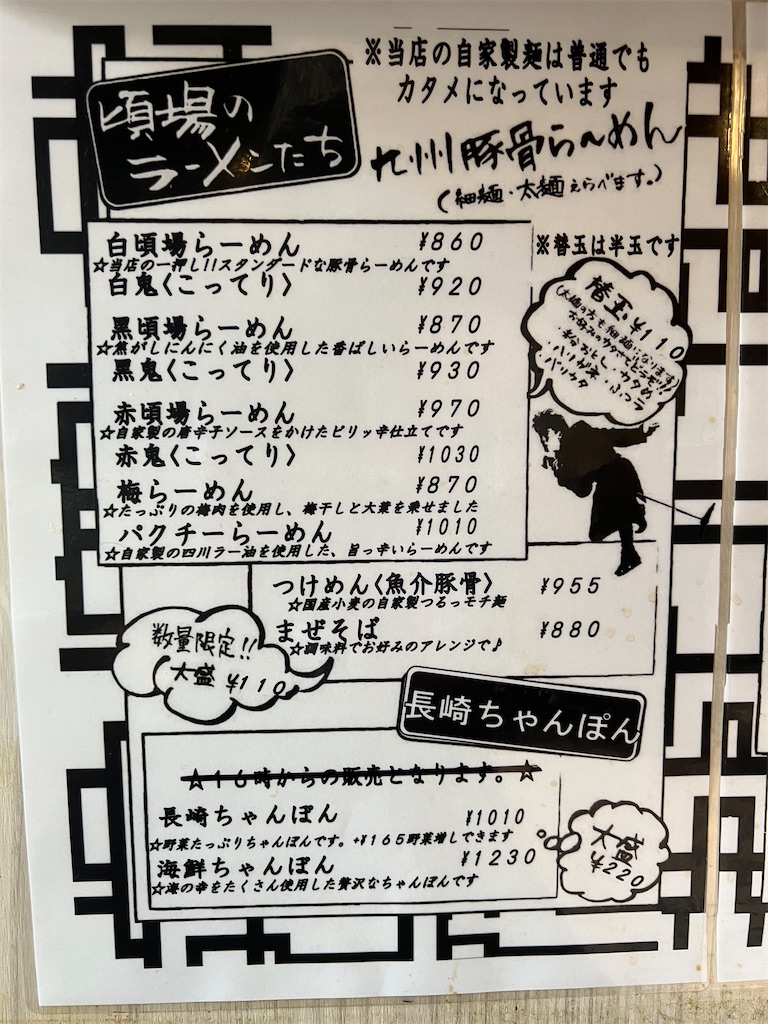 ※当店の自家製麺は普通でも
カタメになっています
頃場の
ラーメンたち
九州豚骨らーめん
(細麺・太麺えらべます。)
白頃場らーめん ¥860
☆当店の一押し!!スタンダードな豚骨らーめんです
白鬼〈こってり〉 ¥920
黒頃場らーめん ¥870
☆焦がしにんにく油を使用した香ばしいらーめんです
黒鬼〈こってり〉 ¥930
赤頃場らーめん ¥970
☆自家製の唐辛子ソースをかけたピリッ辛仕立てです
赤鬼〈こってり〉 ¥1030
梅らーめん ¥870
☆たっぷりの梅肉を使用し、梅干しと大葉を乗せました
パクチーらーめん ¥1010
☆自家製の四川ラー油を使用した、旨っ辛いらーめんです
※替玉は半玉です
替玉¥110
(太麺の方も細麺になります)
お好みのカタサでどうぞ!!
・粉おとし・カタめ
・ハリガネ・ふつう
・バリカタ
つけめん〈魚介豚骨〉 ¥955
☆国産小麦の自家製つるっモチ麺
まぜそば ¥880
☆調味料でお好みのアレンジで♪
数量限定!!
大盛 ¥110
長崎ちゃんぽん
☆16時からの販売となります。☆
長崎ちゃんぽん ¥1010
☆野菜たっぷりちゃんぽんです。+¥165野菜増しできます
海鮮ちゃんぽん ¥1230
☆海の幸をたくさん使用した贅沢なちゃんぽんです
大盛
¥220